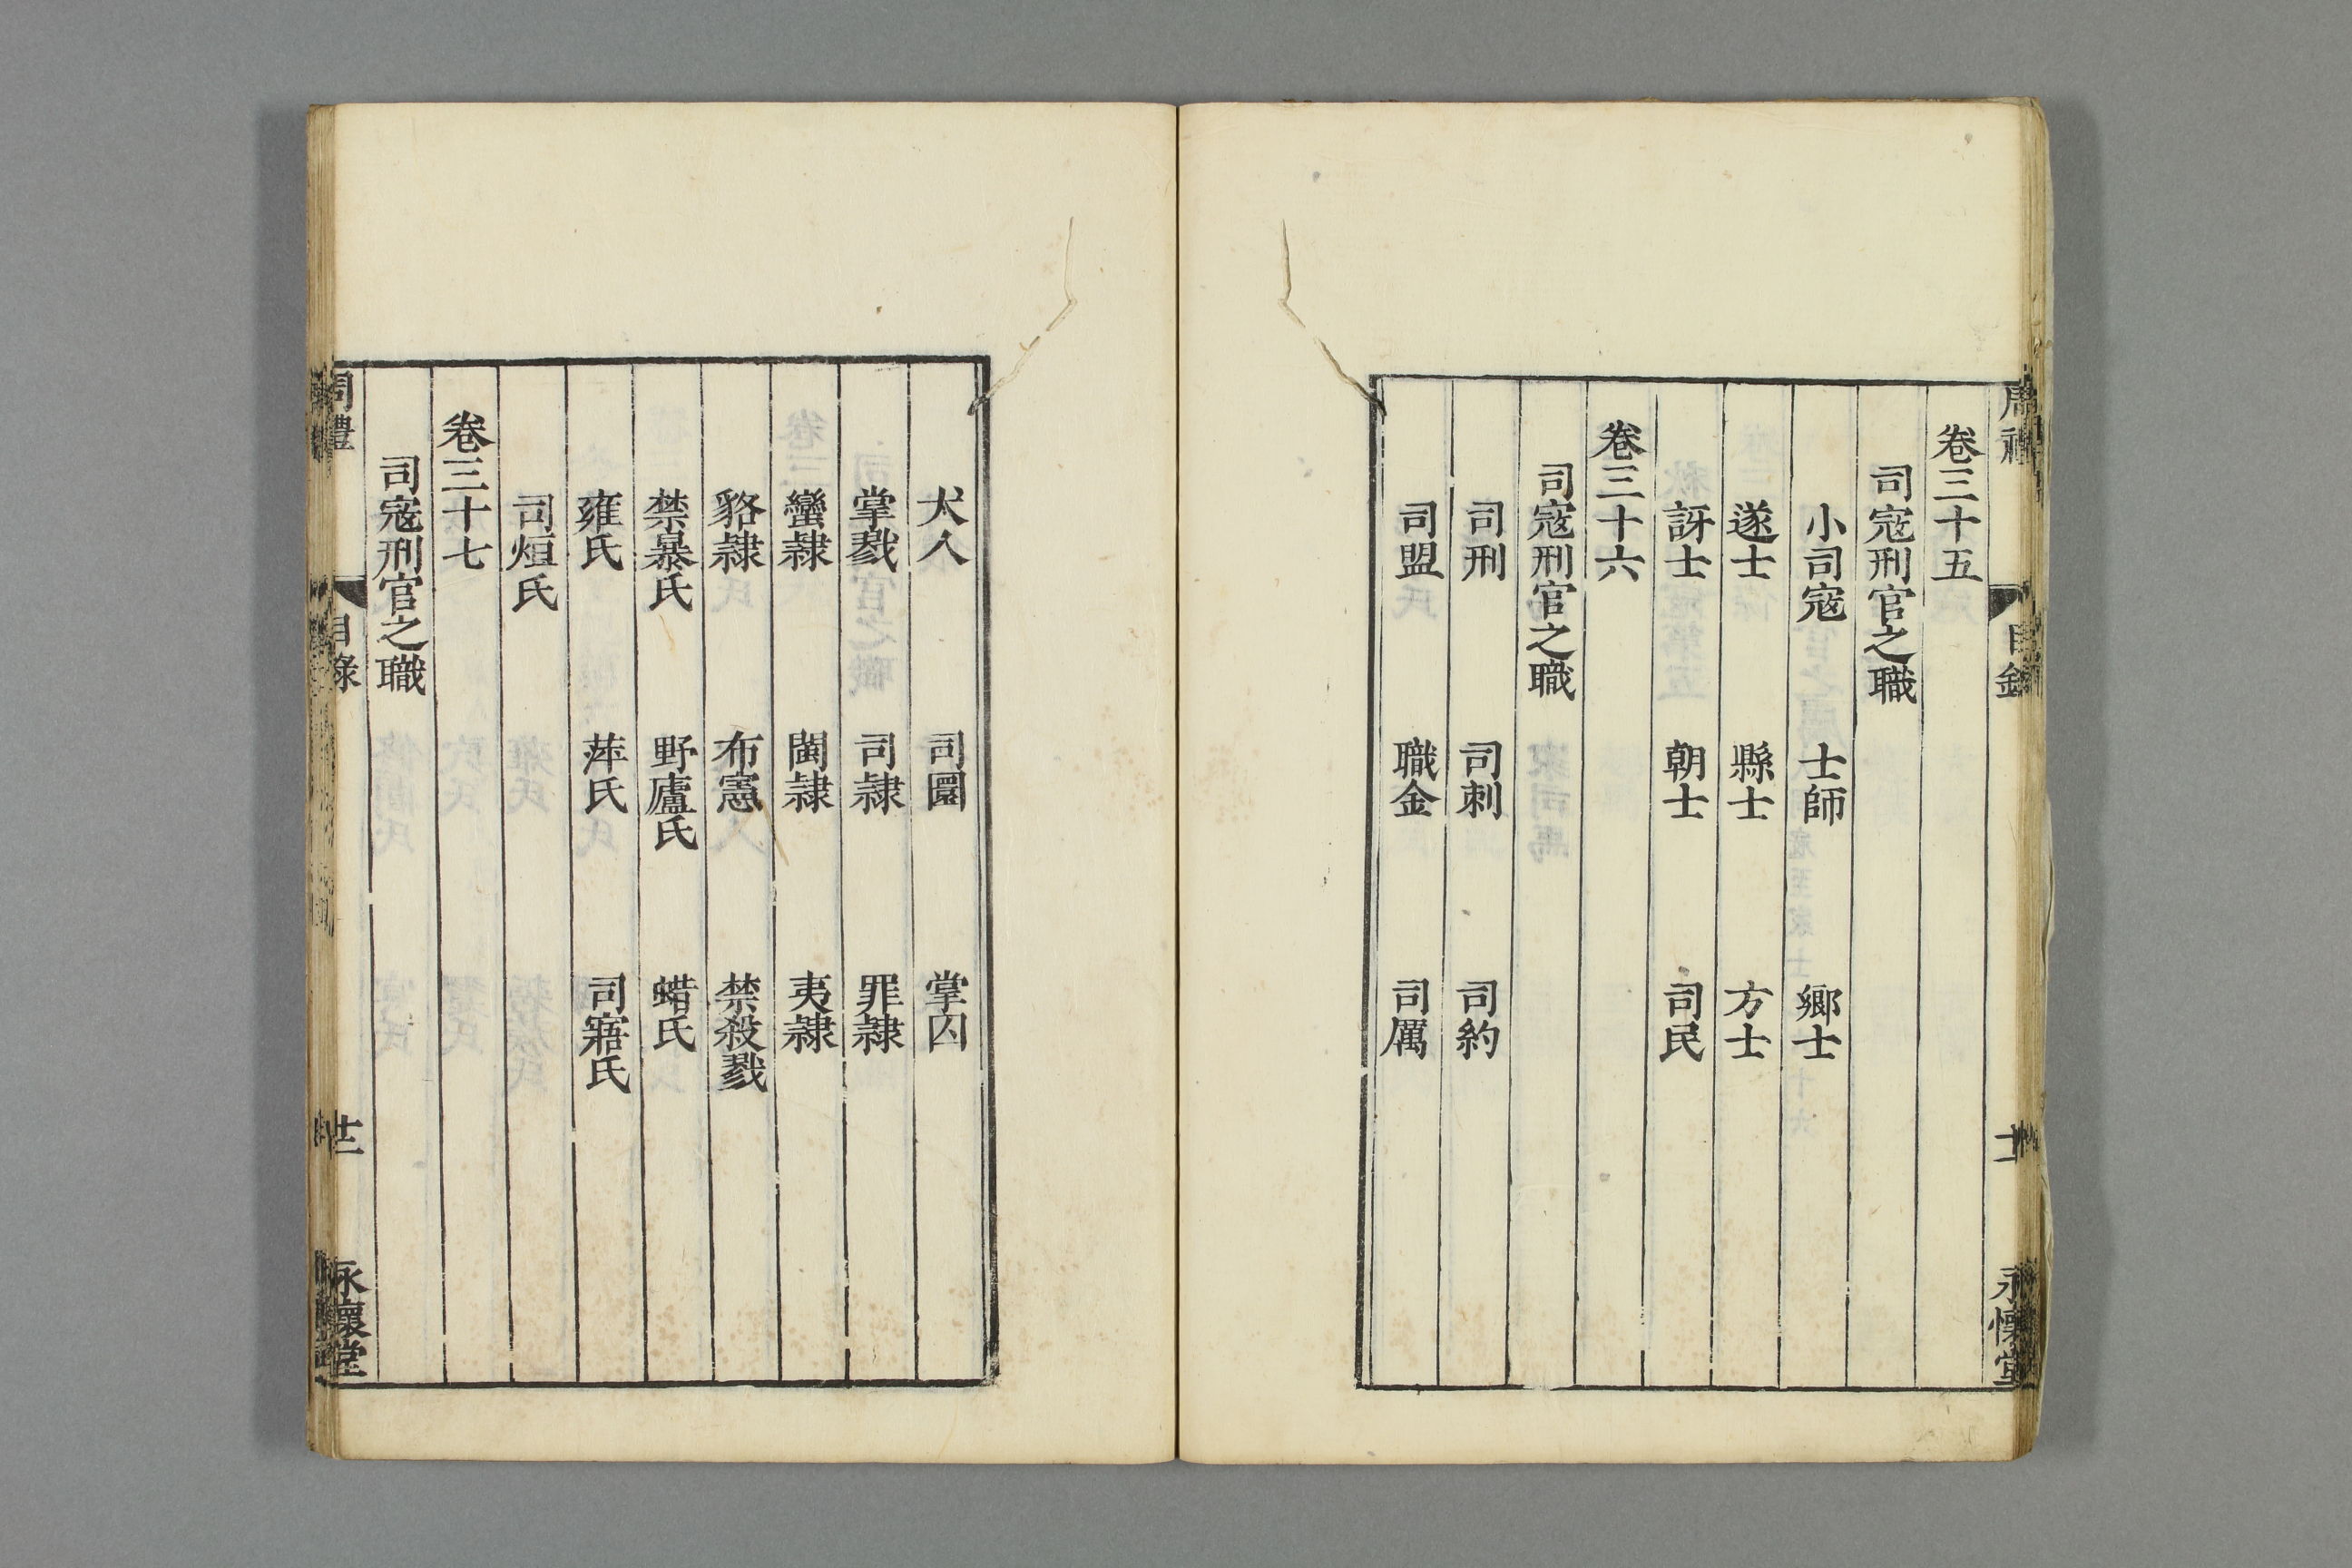 卷三十五
司寇刑官之職
小司寇 士師 鄉士
遂士 縣士 方士
訝士 朝士 司民
卷三十六
司寇刑官之職
司刑 司刺 司約
司盟 職金 司厲
犬人 司圜 掌囚
掌戮 司隸 罪隸
蠻隸 閩隸 夷隸
貉隸 布憲 禁殺戮
禁暴氏 野廬氏 蜡氏
雍氏 萍氏 司寤氏
司烜氏
卷三十七
司寇刑官之職
周禮 目錄 永懷堂